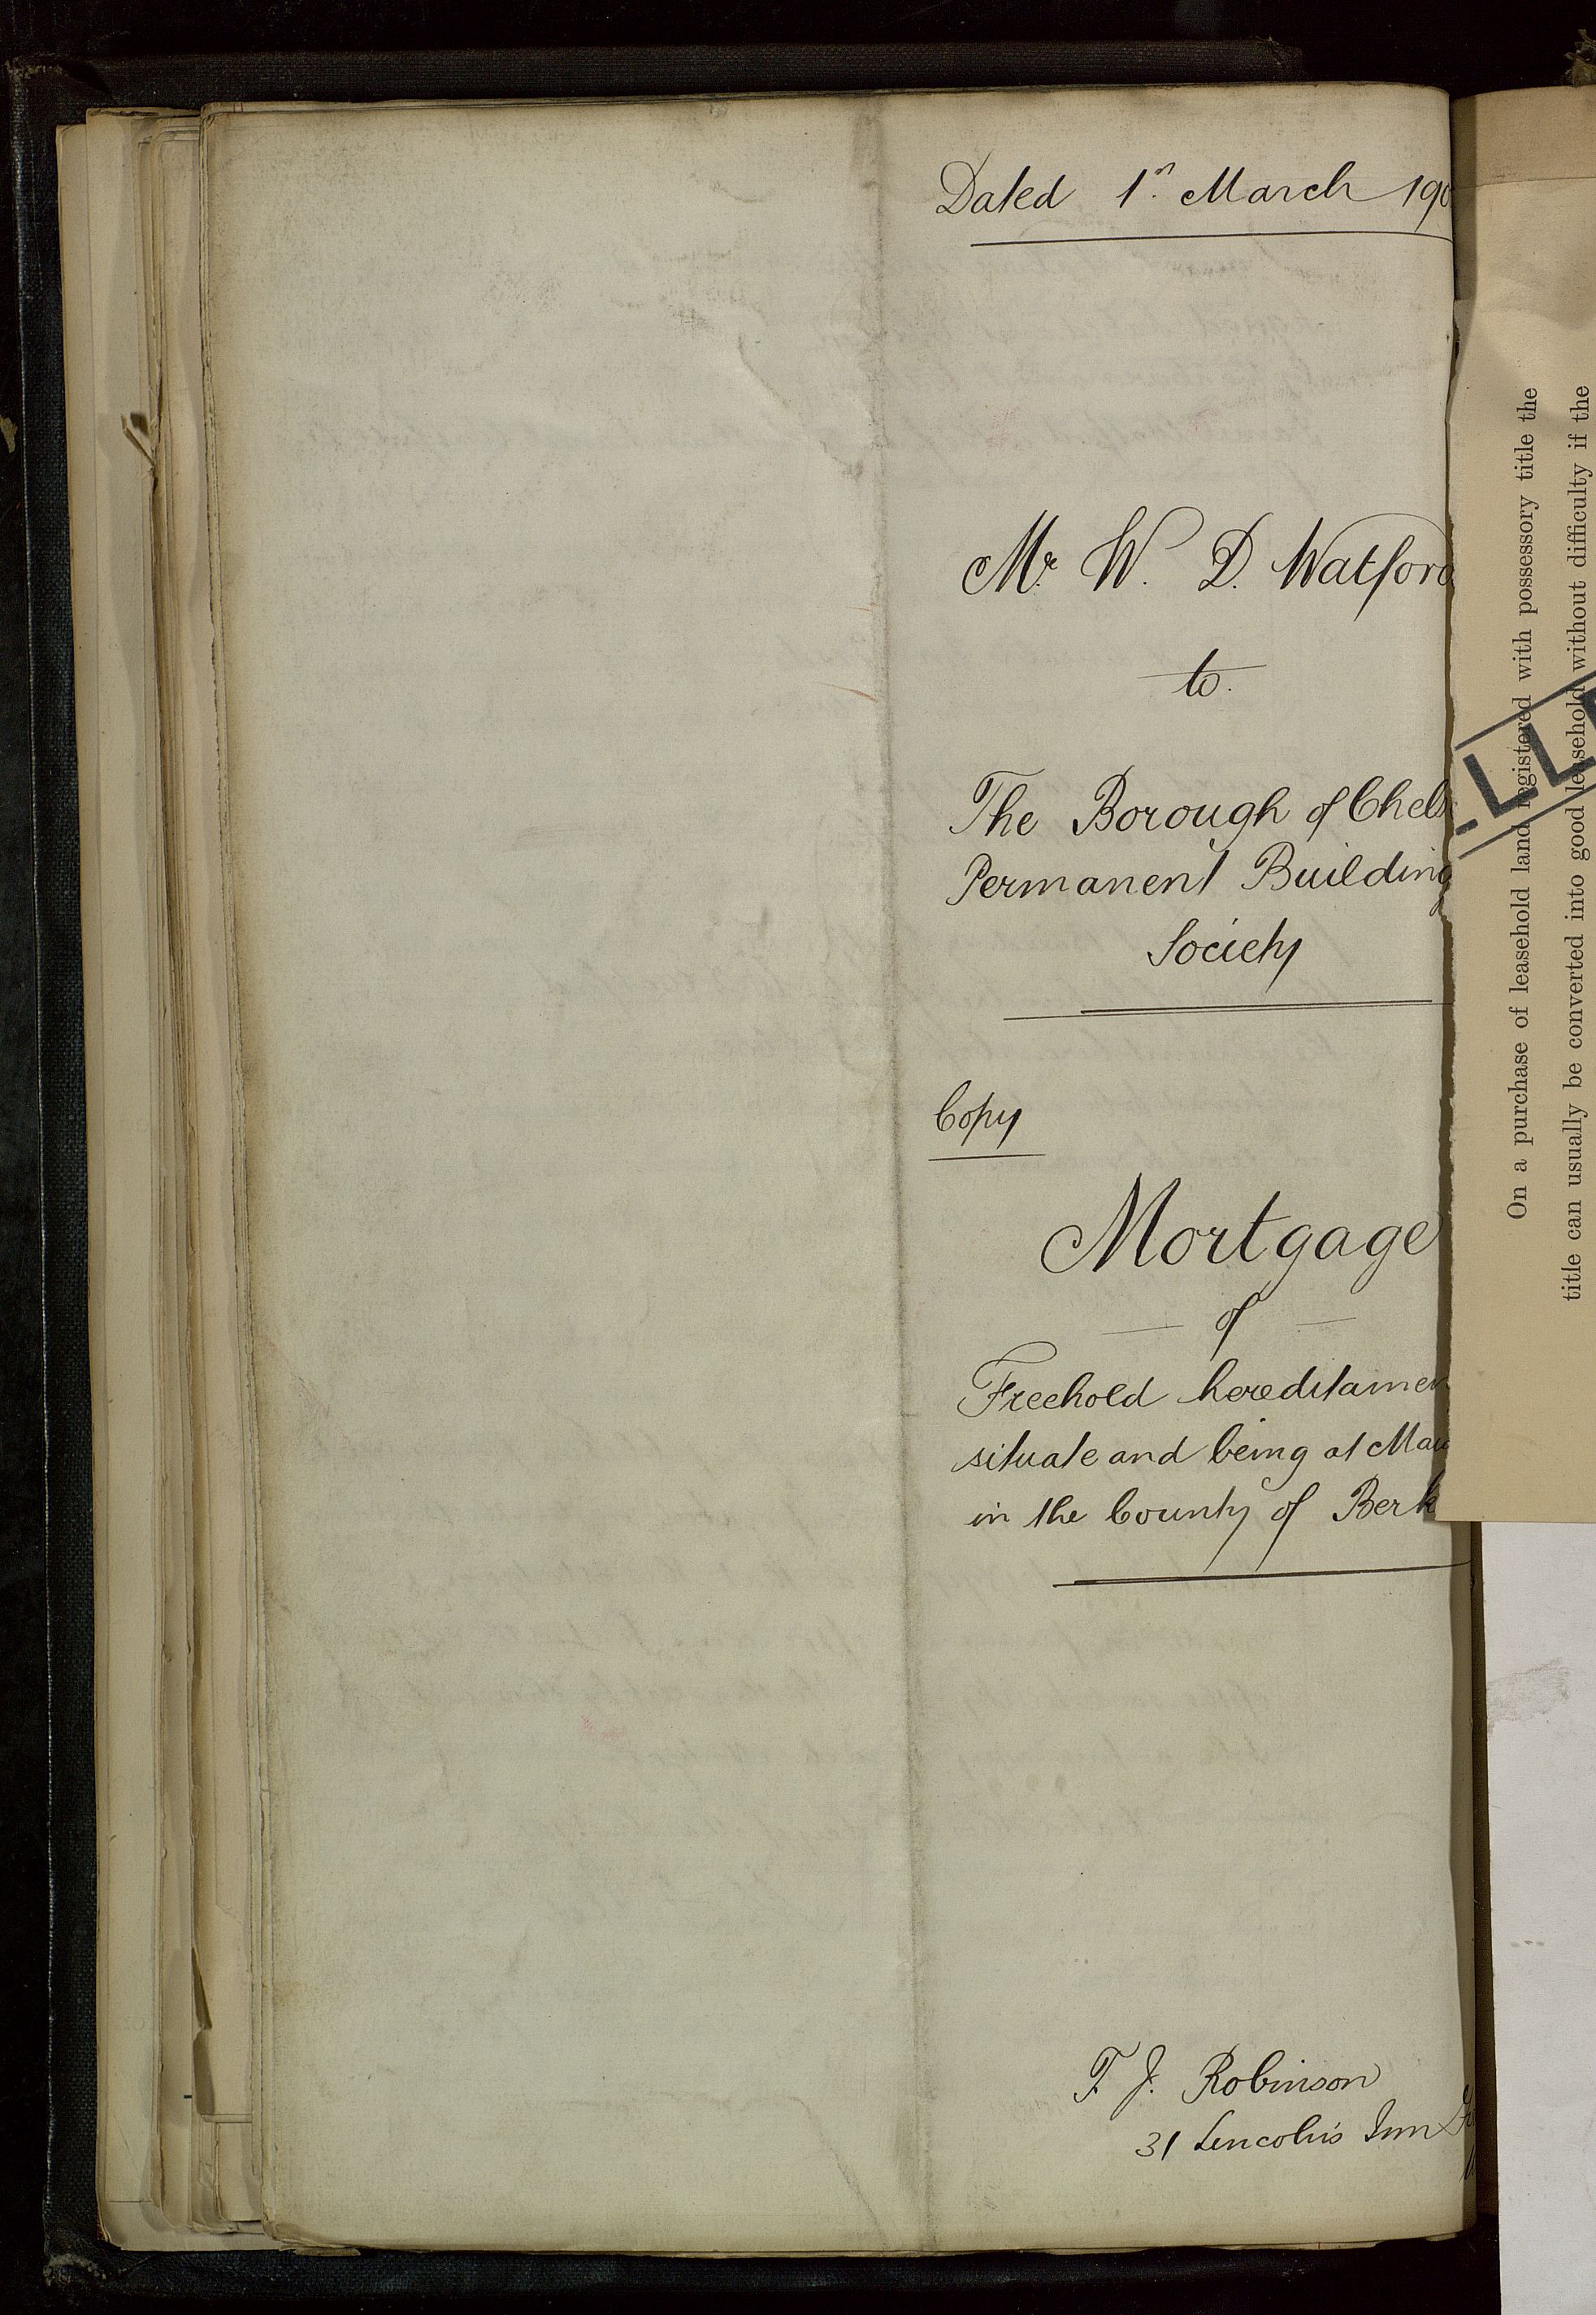 Dated 1st March 190
Mr. W. D. Watford
to.
The Borough of Chels
Permanent Building
Society
Copy
Mortgage
of
Freehold hereditamen
situate and being at
in the County of Berk
T. J. Robinson
31 Lincoln's Inn
On a purchase of leasehold land registered with possessory title the
title can usually be converted into good leasehold without difficulty if the